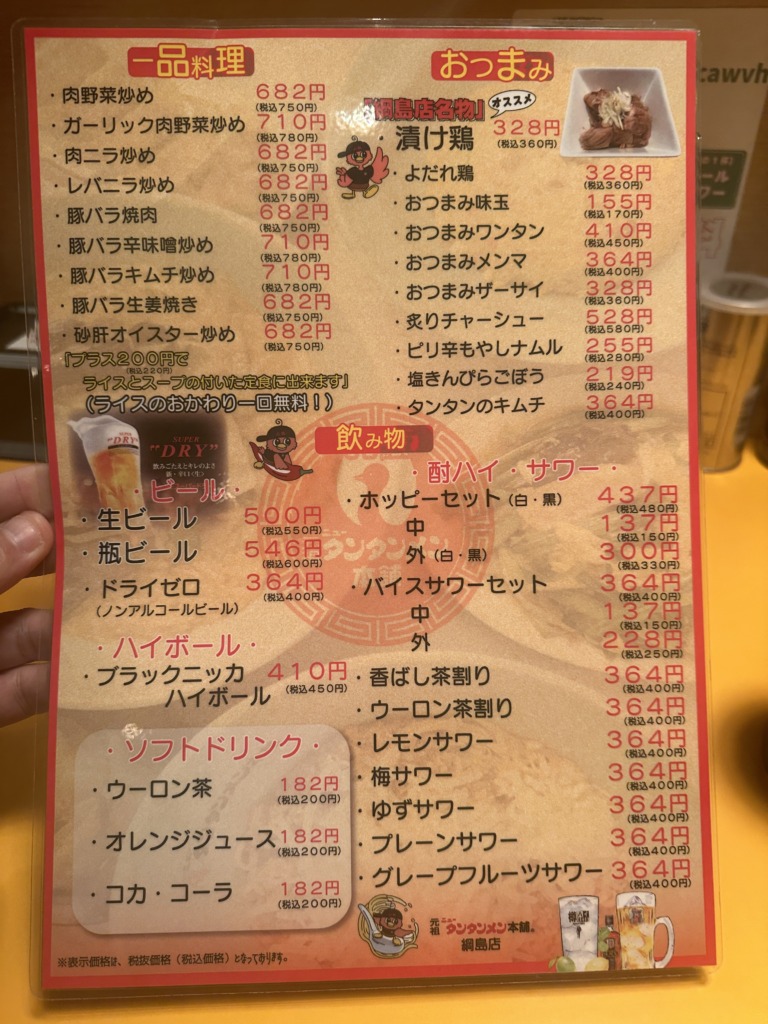 一品料理
・肉野菜炒め 682円
(税込750円)
・ガーリック肉野菜炒め 710円
(税込780円)
・肉ニラ炒め 682円
(税込750円)
・レバニラ炒め 682円
(税込750円)
・豚バラ焼肉 682円
(税込750円)
・豚バラ辛味噌炒め 710円
(税込780円)
・豚バラキムチ炒め 710円
(税込780円)
・豚バラ生姜焼き 682円
(税込750円)
・砂肝オイスター炒め 682円
(税込750円)
「プラス200円で
(税込220円)
ライスとスープの付いた定食に出来ます」
(ライスのおかわり一回無料!)
おつまみ
「綱島店名物」
オススメ
・漬け鶏 328円
(税込360円)
・よだれ鶏 328円
(税込360円)
・おつまみ味玉 155円
(税込170円)
・おつまみワンタン 410円
(税込450円)
・おつまみメンマ 364円
(税込400円)
・おつまみザーサイ 328円
(税込360円)
・炙りチャーシュー 528円
(税込580円)
・ピリ辛もやしナムル 255円
(税込280円)
・塩きんぴらごぼう 219円
(税込240円)
・タンタンのキムチ 364円
(税込400円)
飲み物
SUPER
"DRY"
飲みごたえとキレのよさ
新・辛口〈生〉
・ビール・
・生ビール 500円
(税込550円)
・瓶ビール 546円
(税込600円)
・ドライゼロ 364円
(ノンアルコールビール) (税込400円)
・ハイボール・
・ブラックニッカ 410円
ハイボール (税込450円)
・ソフトドリンク・
・ウーロン茶 182円
(税込200円)
・オレンジジュース 182円
(税込200円)
・コカ・コーラ 182円
(税込200円)
・酎ハイ・サワー・
・ホッピーセット(白・黒) 437円
(税込480円)
中 137円
(税込150円)
外(白・黒) 300円
(税込330円)
・バイスサワーセット 364円
(税込400円)
中 137円
(税込150円)
外 228円
(税込250円)
・香ばし茶割り 364円
(税込400円)
・ウーロン茶割り 364円
(税込400円)
・レモンサワー 364円
(税込400円)
・梅サワー 364円
(税込400円)
・ゆずサワー 364円
(税込400円)
・プレーンサワー 364円
(税込400円)
・グレープフルーツサワー 364円
(税込400円)
元祖 ニュータンタンメン本舗®
綱島店
※表示価格は、税抜価格(税込価格)となっております。
ニュー
タンタンメン
本舗